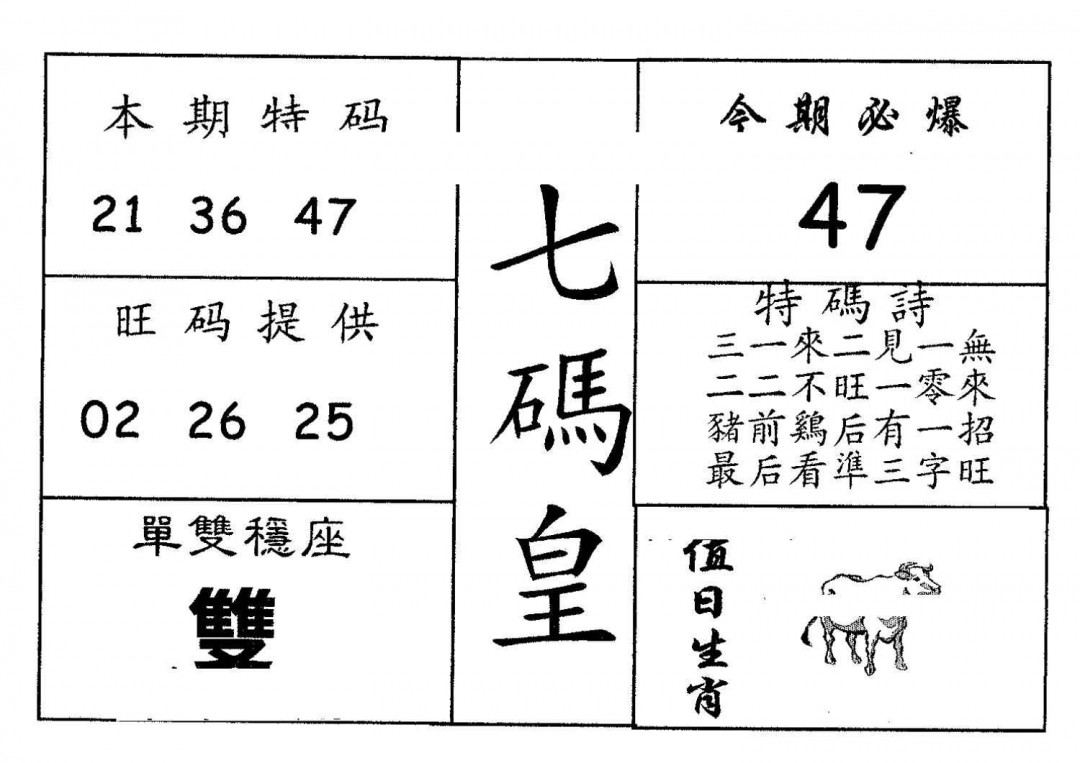 本期特码
21 36 47
旺码提供
02 26 25
單雙穩座
雙
七碼皇
今期必爆
47
特碼詩
三一來二見一無
二二不旺一零來
豬前鷄后有一招
最后看準三字旺
值日生肖